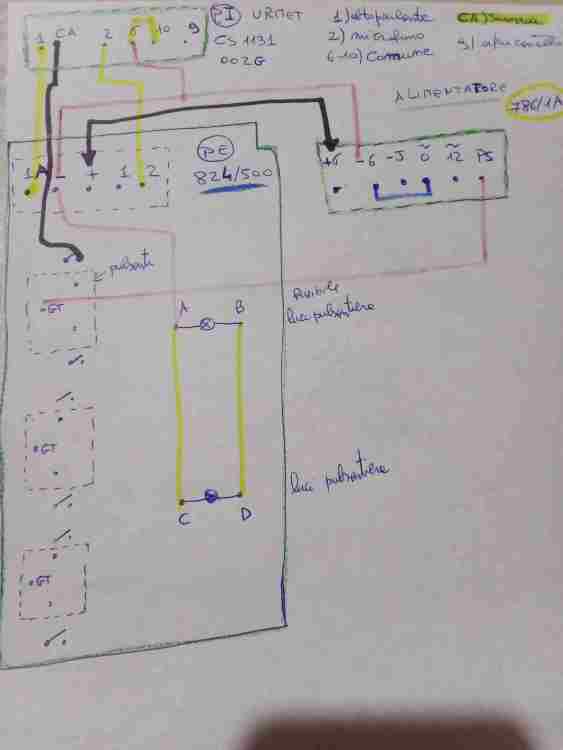 PI URMET 1) altoparlante CA) Suoneria
1 CA 2 6 10 9 CS 1131 2) microfono
002G 6-10) Comune
ALIMENTATORE
786/1A
PE
+6 -6 -J 0 12 PS
1 A - + 1 2
824/500
pulsanti
GT
A B
luce pulsantiere
GT
luce pulsantiere
C D
GT